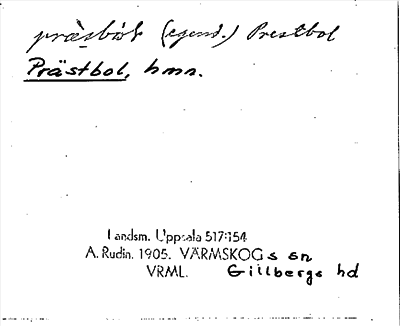 (egend.) Prestbol
Prästbol, hmn.
Landsm. Uppsala 517:154
A. Rudin. 1905. VÄRMSKOGs sn
VRML. Gillbergs hd